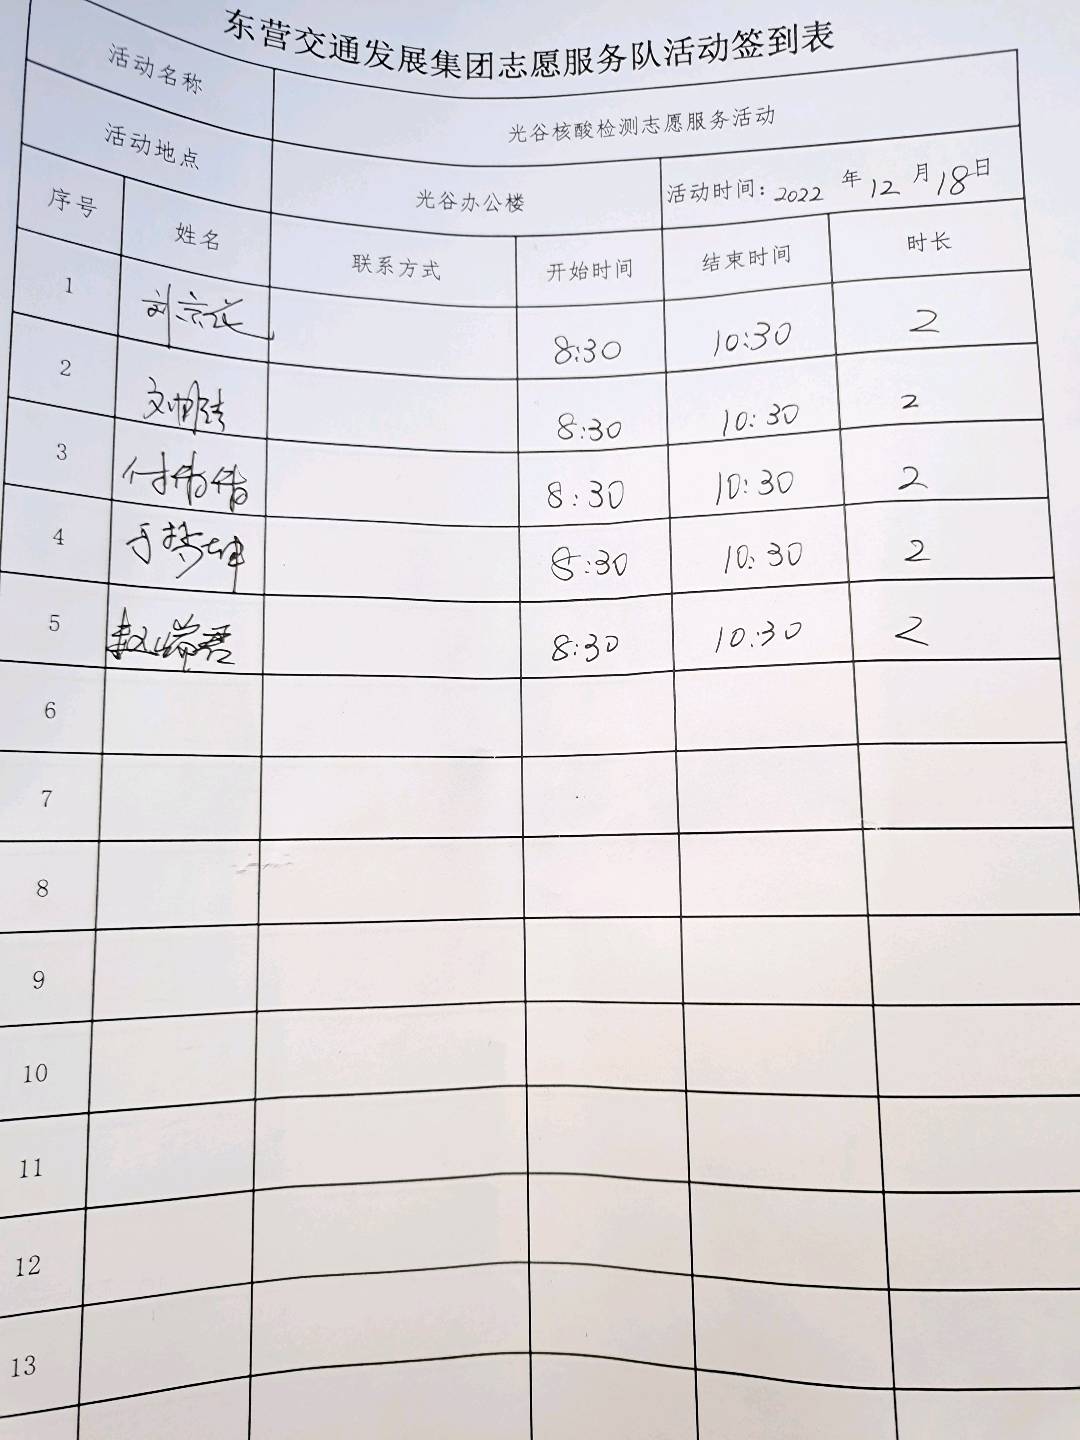 东营交通发展集团志愿服务队活动签到表
活动名称 光谷核酸检测志愿服务活动
活动地点 光谷办公楼 活动时间：2022 年 12 月 18 日
序号 姓名 联系方式 开始时间 结束时间 时长
1 8:30 10:30 2
2 8:30 10:30 2
3 付倩倩 8:30 10:30 2
4 于梦坤 8:30 10:30 2
5 赵端君 8:30 10:30 2
6
7
8
9
10
11
12
13